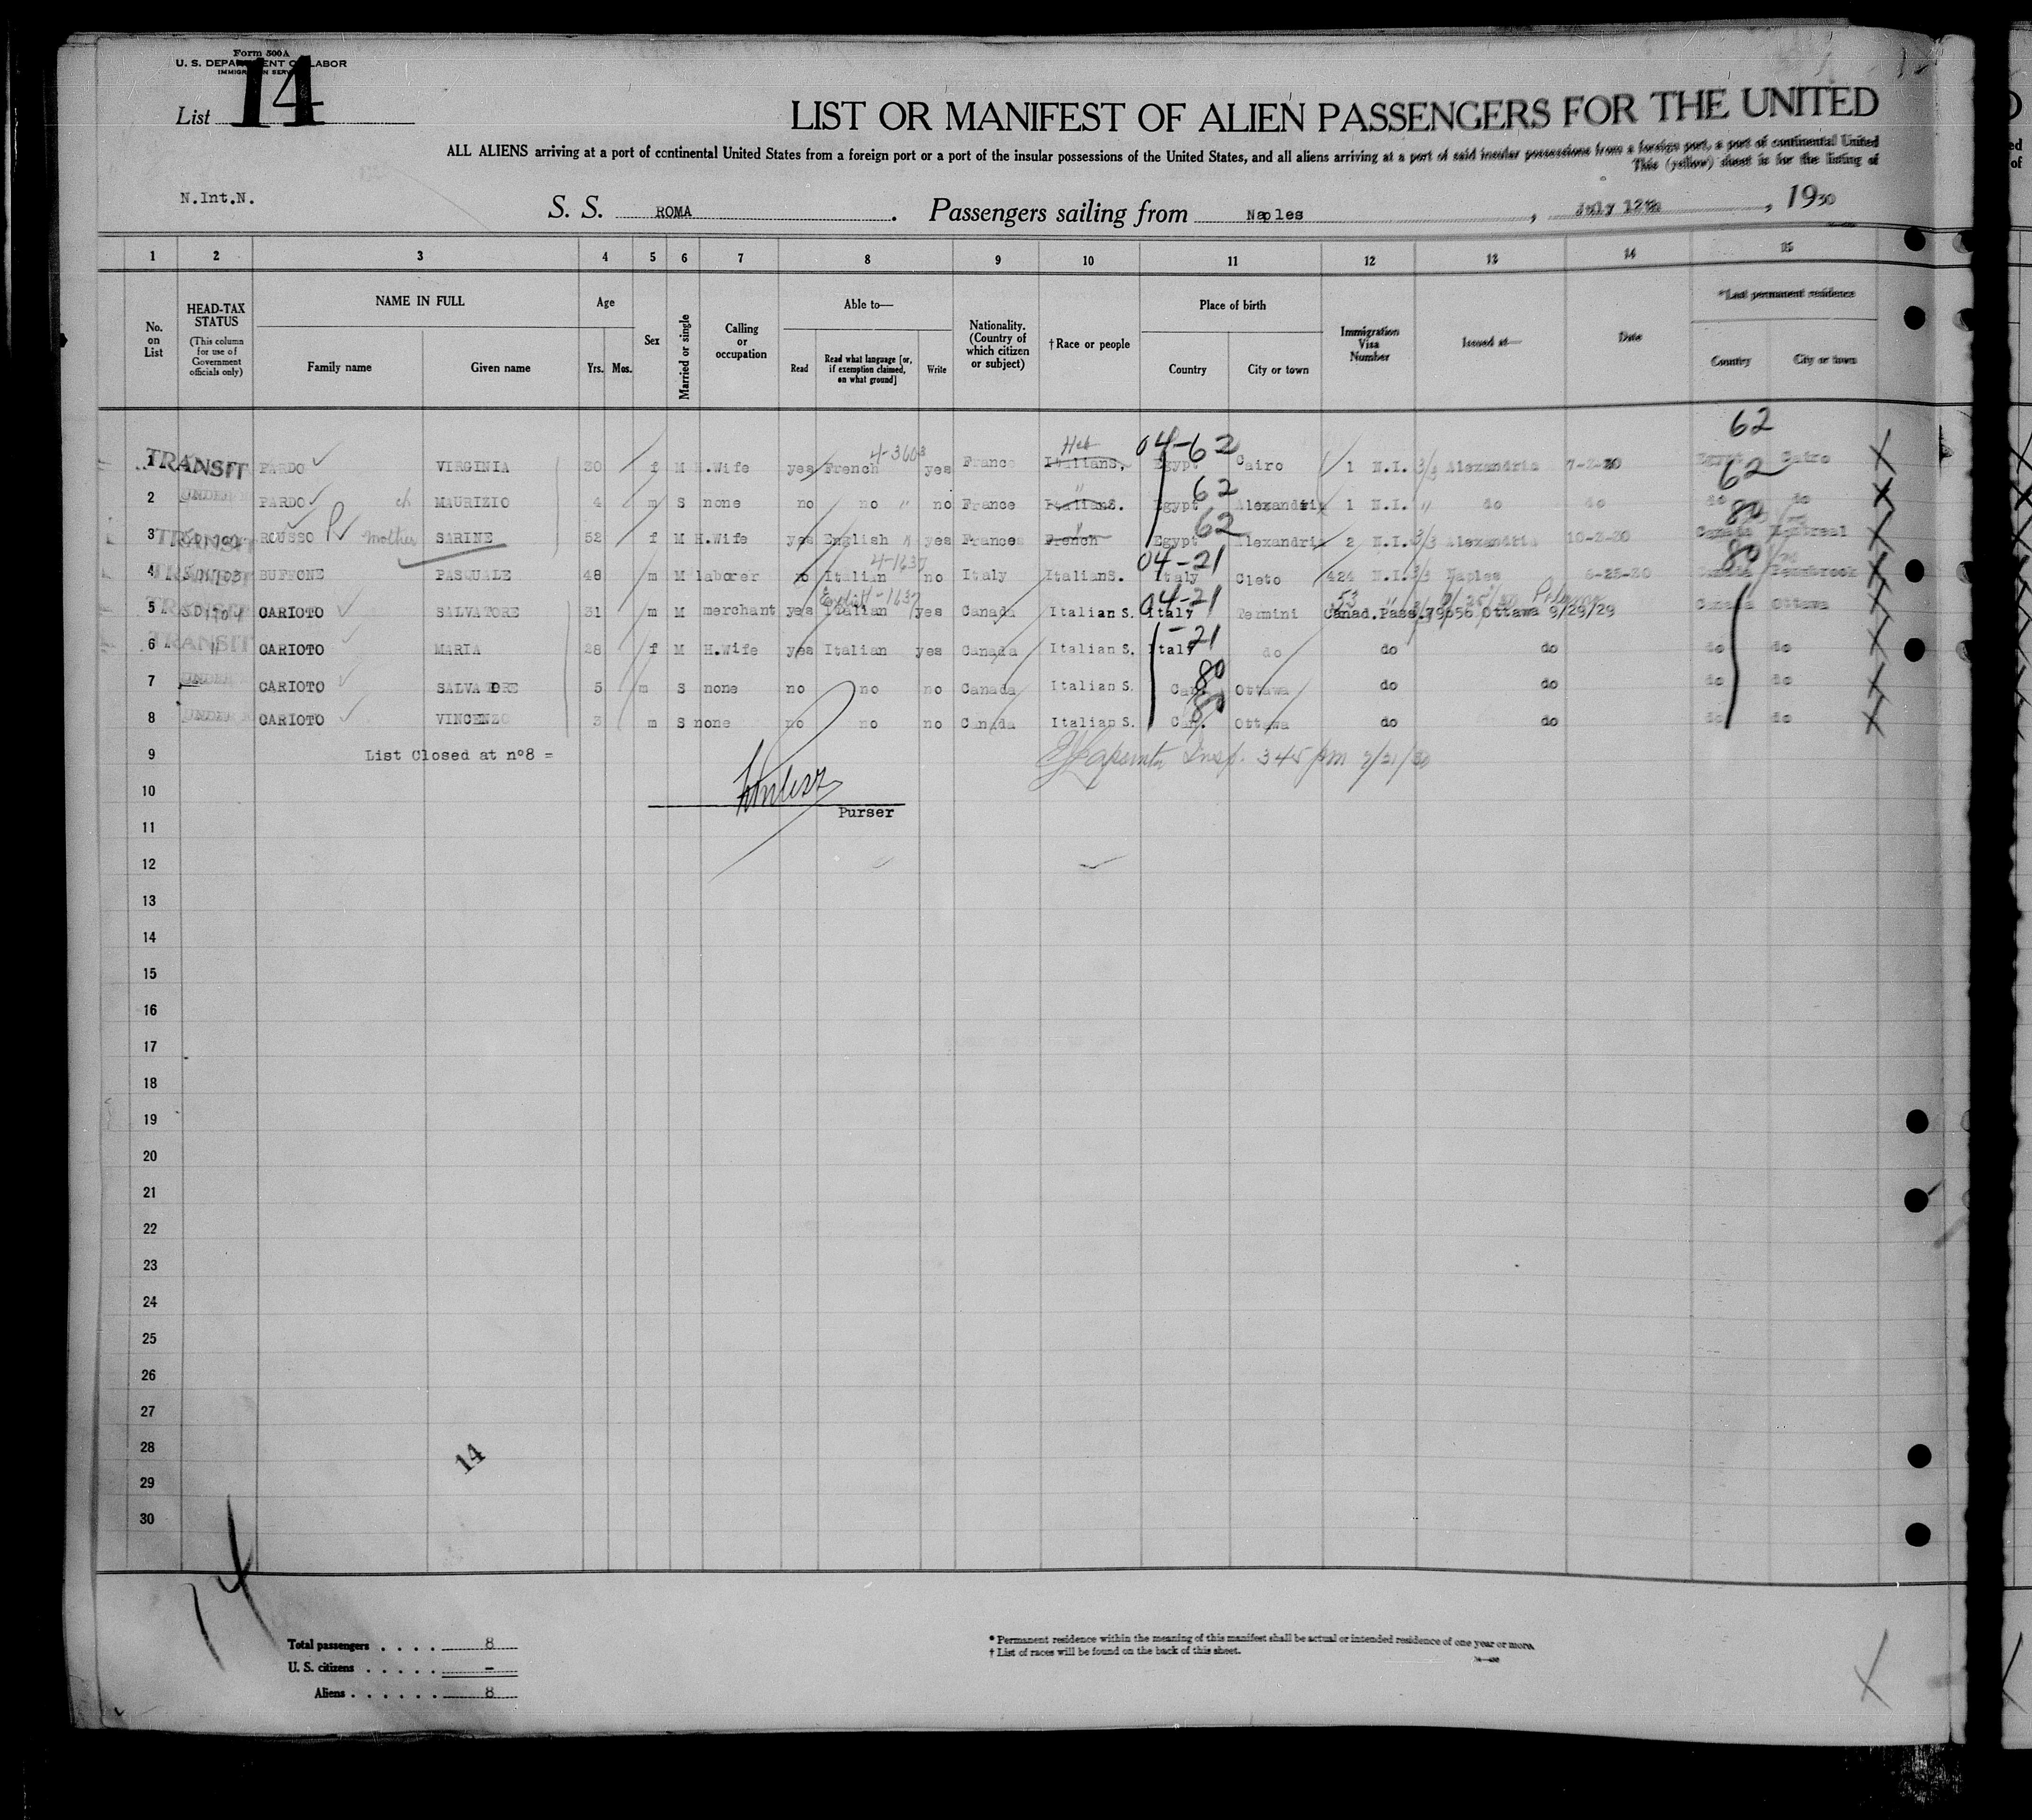 Form 500A
U. S. DEPARTMENT OF LABOR
IMMIGRATION SERVICE
List 14
LIST OR MANIFEST OF ALIEN PASSENGERS FOR THE UNITED
ALL ALIENS arriving at a port of continental United States from a foreign port or a port of the insular possessions of the United States, and all aliens arriving at a port of said insular possessions from a foreign port, a port of continental United
This (yellow) sheet is for the listing of
N.Int.N.
S. S. ROMA . Passengers sailing from Naples , July 12th , 1930
1 2 3 4 5 6 7 8 9 10 11 12 13 14 15
No. on List
HEAD-TAX STATUS (This column for use of Government officials only)
NAME IN FULL Family name Given name
Age Yrs. Mos.
Sex
Married or single
Calling or occupation
Able to— Read Read what language [or, if exemption claimed, on what ground] Write
Nationality. (Country of which citizen or subject)
†Race or people
Place of birth Country City or town
Immigration Visa Number
Issued at—
Date
*Last permanent residence Country City or town
62
Heb 04-62 4-3608
1 TRANSIT PARDO VIRGINIA 30 f M H.Wife yes French yes France ItalianS. Egypt Cairo 1 N.I. 3/3 Alexandria 7-2-30 Egypt Cairo
62 62
2 UNDER PARDO ch MAURIZIO 4 m S none no no " no France ItalianS. Egypt Alexandria 1 N.I. " do do do do
" 62 80
3 TRANSIT ROUSSO mother SARINE 52 f M H.Wife yes English yes France French Egypt Alexandria 2 N.I. 3/3 Alexandria 10-2-30 Canada Montreal
4-1637 04-21 80
4 TRANSIT BUFFONE PASQUALE 48 m M laborer no Italian no Italy ItalianS. Italy Cleto 424 N.I. 3/3 Naples 6-25-30 Canada
English-1637 04-21 53 " Palermo
5 TRANSIT CARIOTO SALVATORE 31 m M merchant yes Italian yes Canada Italian S. Italy Termini Canad.Pass.79656 Ottawa 9/29/29 Canada Ottawa
-21
6 TRANSIT " CARIOTO MARIA 28 f M H.Wife yes Italian yes Canada Italian S. Italy do do do do do
80
7 UNDER CARIOTO SALVATORE 5 m S none no no no Canada Italian S. Can. Ottawa do do do do
80
8 UNDER CARIOTO VINCENZO 3 m S none no no no Canada Italian S. Can. Ottawa do do do do
9 List Closed at n°8 = Insp. 345 pm
10
Purser
11
12
13
14
15
16
17
18
19
20
21
22
23
24
25
26
27
28
14
29
30
14
Total passengers . . . . 8
U. S. citizens . . . . . –
Aliens . . . . . . 8
* Permanent residence within the meaning of this manifest shall be actual or intended residence of one year or more.
† List of races will be found on the back of this sheet.